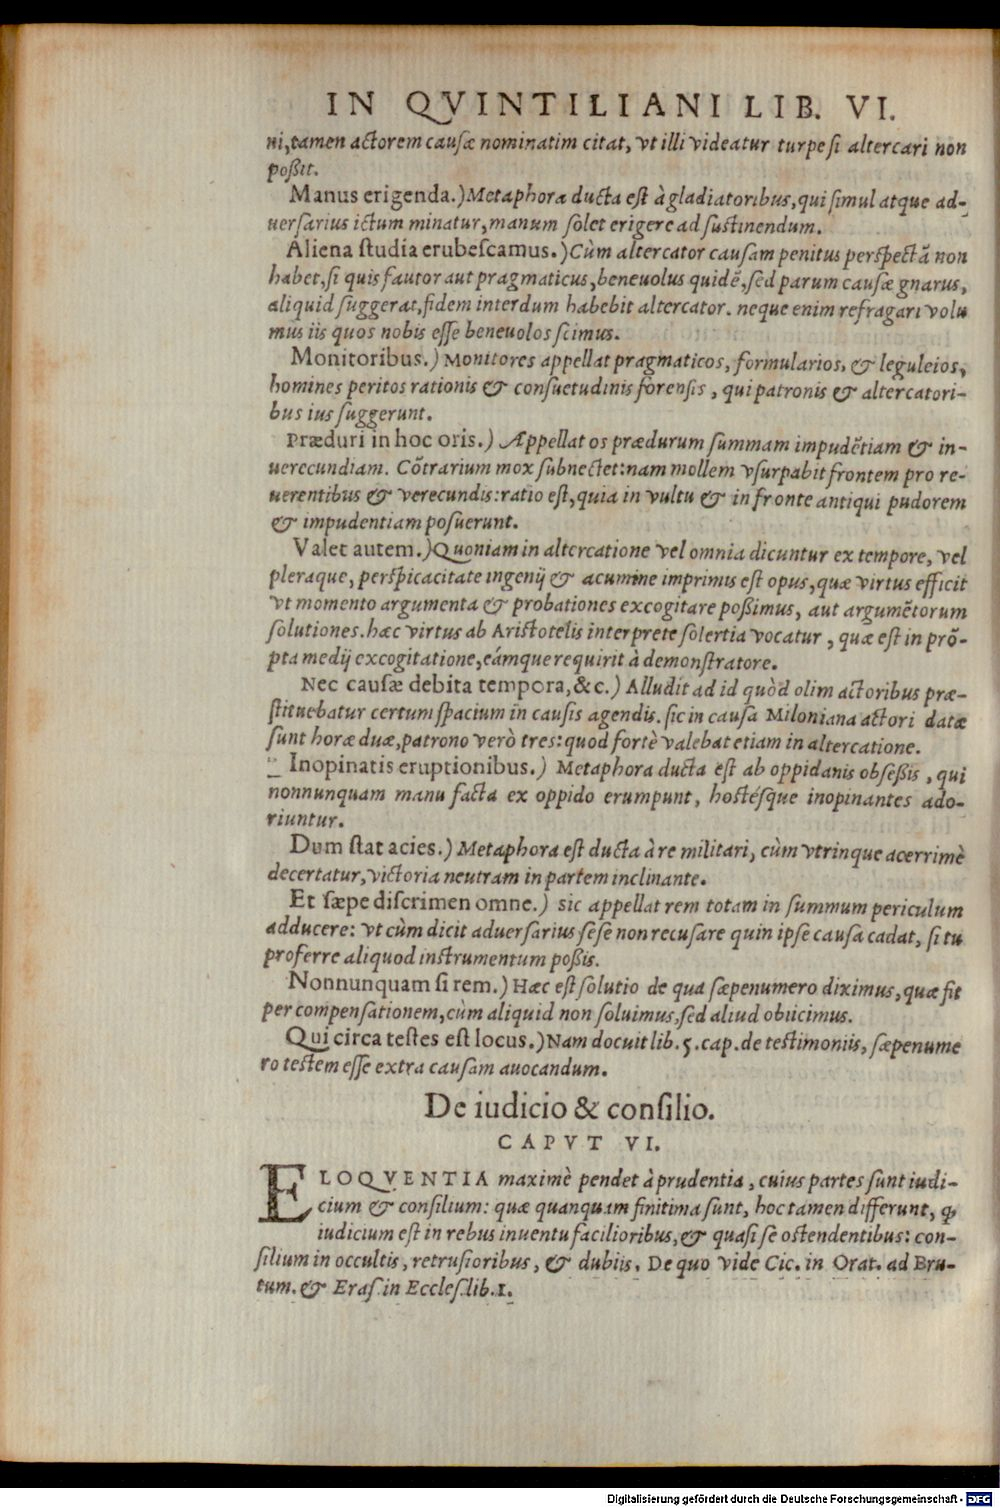 IN QVINTILIANI LIB. VI.
ni, tamen actorem causæ nominatim citat, vt illi videatur turpe si altercari non
poßit.
Manus erigenda.) Metaphora ducta est à gladiatoribus, qui simul atque ad-
uersarius ictum minatur, manum solet erigere ad sustinendum.
Aliena studia erubescamus.) Cùm altercator causam penitus perspectã non
habet, si quis fautor aut pragmaticus, beneuolus quidẽ, sed parum causæ gnarus,
aliquid suggerat, fidem interdum habebit altercator. neque enim refragari volu
mus iis quos nobis esse beneuolos scimus.
Monitoribus.) Monitores appellat pragmaticos, formularios, & leguleios,
homines peritos rationis & consuetudinis forensis, qui patronis & altercatori-
bus ius suggerunt.
Præduri in hoc oris.) Appellat os prædurum summam impudẽtiam & in-
uerecundiam. Cõtrarium mox subnectet: nam mollem vsurpabit frontem pro re-
uerentibus & verecundis: ratio est, quia in vultu & in fronte antiqui pudorem
& impudentiam posuerunt.
Valet autem.) Quoniam in altercatione vel omnia dicuntur ex tempore, vel
pleraque, perspicacitate ingenij & acumine imprimis est opus, quæ virtus efficit
vt momento argumenta & probationes excogitare poßimus, aut argumẽtorum
solutiones. hæc virtus ab Aristotelis interprete solertia vocatur, quæ est in prõ-
pta medij excogitatione, eámque requirit à demonstratore.
Nec causæ debita tempora, &c.) Alludit ad id quòd olim actoribus præ-
stituebatur certum spacium in causis agendis. sic in causa Miloniana actori datæ
sunt horæ duæ, patrono verò tres: quod fortè valebat etiam in altercatione.
Inopinatis eruptionibus.) Metaphora ducta est ab oppidanis obseßis, qui
nonnunquam manu facta ex oppido erumpunt, hostésque inopinantes ado-
riuntur.
Dum stat acies.) Metaphora est ducta à re militari, cùm vtrinque acerrimè
decertatur, victoria neutram in partem inclinante.
Et sæpe discrimen omne.) sic appellat rem totam in summum periculum
adducere: vt cùm dicit aduersarius sese non recusare quin ipse causa cadat, si tu
proferre aliquod instrumentum poßis.
Nonnunquam si rem.) Hæc est solutio de qua sæpenumero diximus, quæ fit
per compensationem, cùm aliquid non soluimus, sed aliud obiicimus.
Qui circa testes est locus.) Nam docuit lib. 5. cap. de testimoniis, sæpenume
ro testem esse extra causam auocandum.
De iudicio & consilio.
CAPVT VI.
ELOQVENTIA maximè pendet à prudentia, cuius partes sunt iudi-
cium & consilium: quæ quanquam finitima sunt, hoc tamen differunt, ꝙ
iudicium est in rebus inuentu facilioribus, & quasi se ostendentibus: con-
silium in occultis, retrusioribus, & dubiis. De quo vide Cic. in Orat. ad Bru-
tum. & Eras. in Eccles. lib. 1.
Digitalisierung gefördert durch die Deutsche Forschungsgemeinschaft - DFG